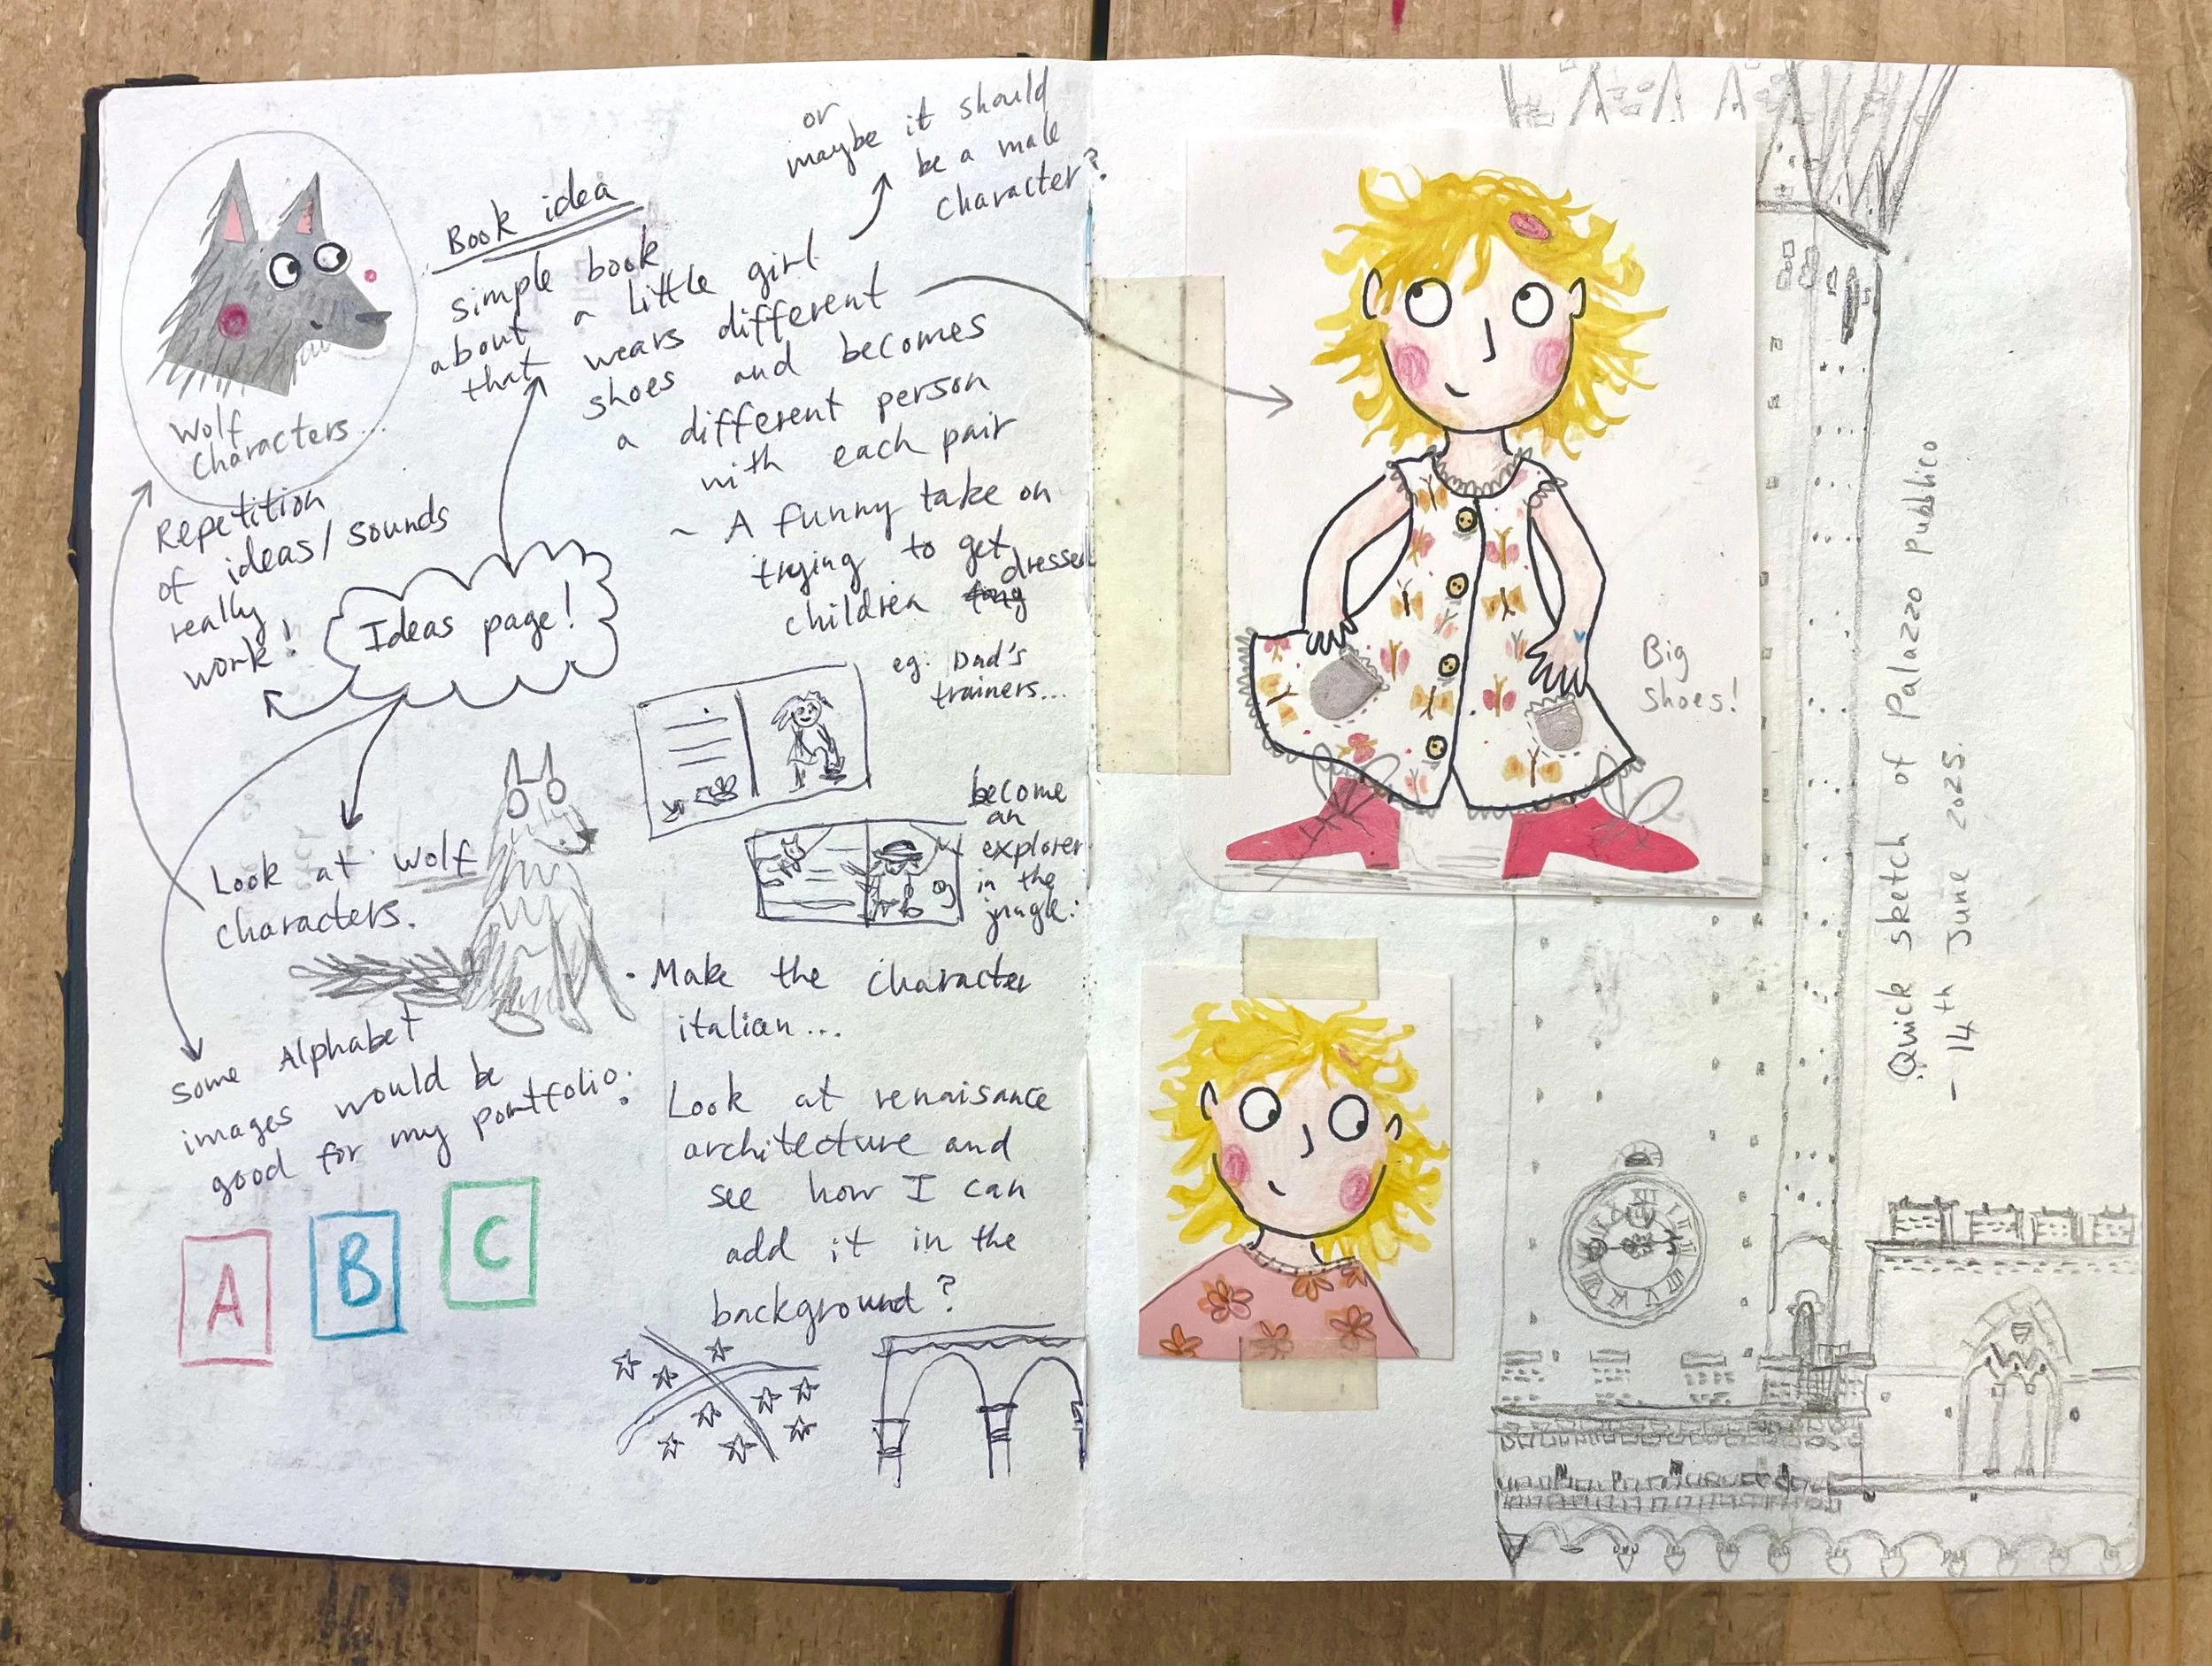 Wolf
Characters...
Repetition
of ideas/sounds
really
work!
Book idea
simple book
about a little girl
that wears different
shoes and becomes
a different person
with each pair
~ A funny take on
trying to get
dressed
children
or
maybe it should
be a male
character?
Ideas page!
eg. Dad's
trainers...
become
an
explorer
in the
jungle.
Look at wolf
characters.
Some Alphabet
images would be
good for my portfolio.
A
B
C
• Make the character
italian...
• Look at renaisance
architecture and
see how I can
add it in the
background?
Big
shoes!
Quick sketch of Palazzo pubblico
- 14th June 2025.